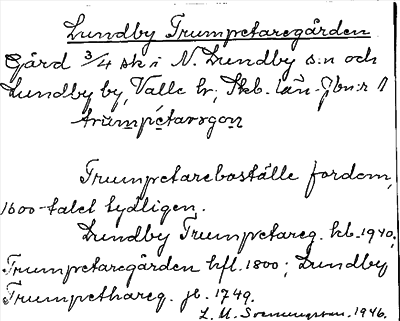 Lundby Trumpetaregården
Gård 3/4 sk i N. Lundby s:n och
Lundby by, Valle hr, Skb. län. Jbn:r 1
trumpetarsgon
Trumpetareboställe fordom,
1600-talet tydligen.
Lundby Trumpetareg. kb. 1940;
Trumpetaregården hfl. 1800; Lundby
Trumpethareg. jb. 1749.
L. M. 1946.